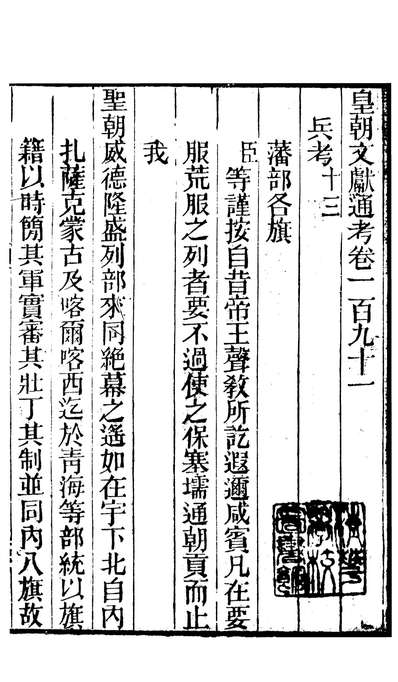 皇朝文獻通考卷一百九十一
兵考十三
藩部各旗
臣等謹按自昔帝王聲教所訖遐邇咸賓凡在要
服荒服之列者要不過使之保塞壖通朝貢而止
我
聖朝威德隆盛列部來同絕幕之遙如在宇下北自內
扎薩克蒙古及喀爾喀西迄於青海等部統以旗
籍以時簡其軍實審其壯丁其制並同內八旗故